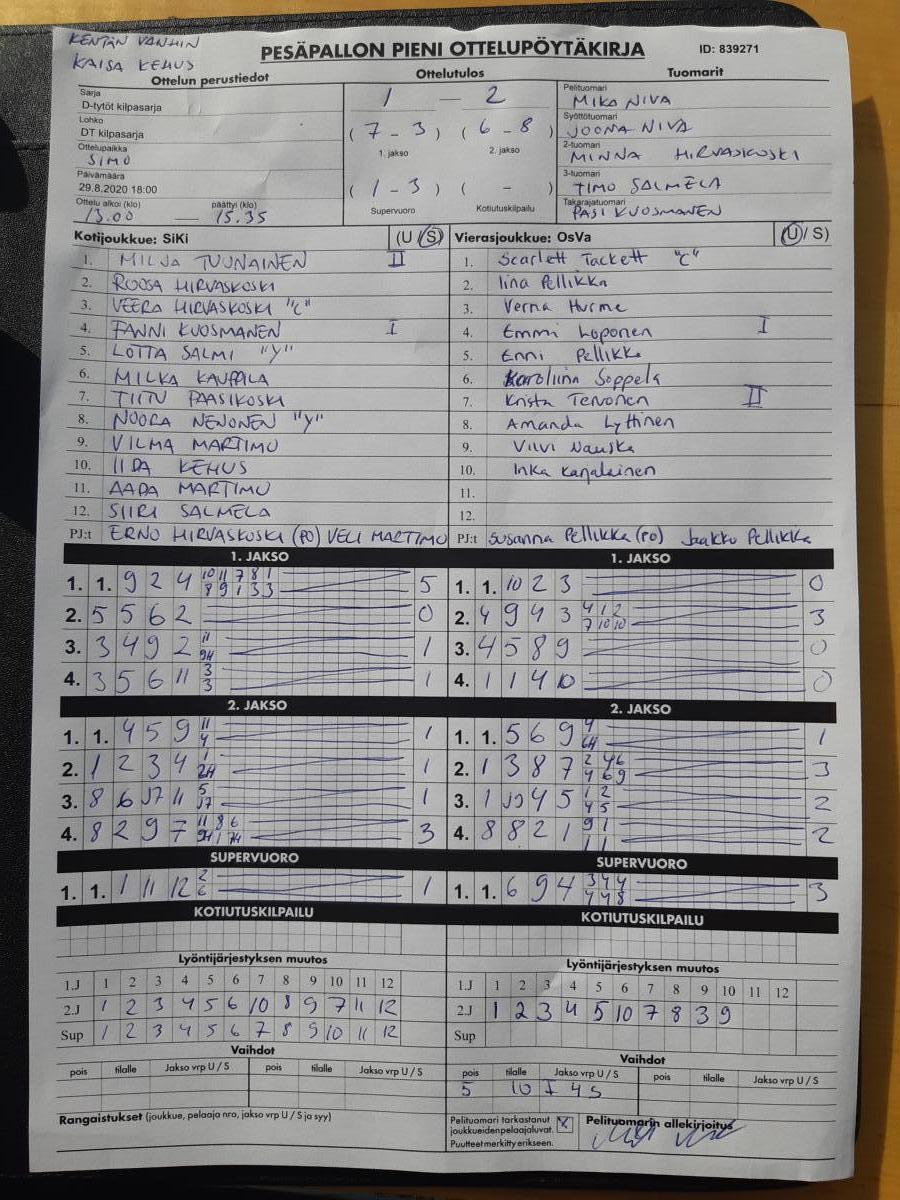 KENTÄN VANHIN
KAISA KEHUS
PESÄPALLON PIENI OTTELUPÖYTÄKIRJA
ID: 839271
Ottelun perustiedot
Sarja
D-tytöt kilpasarja
Lohko
DT kilpasarja
Ottelupaikka
SIMO
Päivämäärä
29.8.2020 18:00
Ottelu alkoi (klo) päättyi (klo)
13.00 — 15.35
Ottelutulos
1 — 2
(7-3) (6-8)
1. jakso 2. jakso
(1-3) ( - )
Supervuoro Kotiutuskilpailu
Tuomarit
Pelituomari
MIKA NIVA
Syöttötuomari
JOONA NIVA
2-tuomari
MINNA HIRVASKOSKI
3-tuomari
TIMO SALMELA
Takarajatuomari
PASI KUOSMANEN
Kotijoukkue: SiKi (U/S)
1. MILJA TUUNAINEN II
2. ROOSA HIRVASKOSKI
3. VEERA HIRVASKOSKI "C"
4. FANNI KUOSMANEN I
5. LOTTA SALMI "Y"
6. MILKA KAUPPILA
7. TIITU PAASIKOSKI
8. NOORA NENONEN "Y"
9. VILMA MARTIMO
10. IIDA KEHUS
11. AADA MARTIMO
12. SIIRI SALMELA
PJ:t ERNO HIRVASKOSKI (PO) VELI MARTIMO
Vierasjoukkue: OsVa (U/S)
1. Scarlett Tackett "C"
2. Iina Pellikka
3. Verna Hurme
4. Emmi Loponen I
5. Enni Pellikka
6. Karoliina Soppela
7. Krista Tervonen II
8. Amanda Lyttinen
9. Vilvi
10. Inka Karjalainen
11.
12.
PJ:t Susanna Pellikka (PO) Jaakko Pellikka
1. JAKSO
1. 1. 9 2 4 10 11 7 8 1 5
8 9 1 3 3
2. 5 5 6 2 0
3. 3 4 9 2 11 1
9H
4. 3 5 6 11 3 1
3
1. JAKSO
1. 1. 10 2 3 0
2. 4 9 4 3 4 1 2 3
7 10 10
3. 4 5 8 9 0
4. 1 1 4 10 0
2. JAKSO
1. 1. 4 5 9 11 1
4
2. 1 2 3 4 1 1
2H
3. 8 6 J7 11 5 1
J7
4. 8 2 9 7 11 8 6 3
9H 1 7H
2. JAKSO
1. 1. 5 6 9 4 1
6H
2. 1 3 8 7 2 4 6 3
4 6 9
3. 1 J9 4 5 1 2 2
4 5
4. 8 8 2 1 9 1 2
1 1
SUPERVUORO
1. 1. 1 11 12 2 1
6
SUPERVUORO
1. 1. 6 9 4 3 4 4 3
4 4 8
KOTIUTUSKILPAILU
KOTIUTUSKILPAILU
Lyöntijärjestyksen muutos
1.J 1 2 3 4 5 6 7 8 9 10 11 12
2.J 1 2 3 4 5 6 10 8 9 7 11 12
Sup 1 2 3 4 5 6 7 8 9 10 11 12
Lyöntijärjestyksen muutos
1.J 1 2 3 4 5 6 7 8 9 10 11 12
2.J 1 2 3 4 5 10 7 8 3 9
Sup
Vaihdot
pois tilalle Jakso vrp U / S pois tilalle Jakso vrp U / S
Vaihdot
pois tilalle Jakso vrp U / S pois tilalle Jakso vrp U / S
5 10 I 4 S
Rangaistukset (joukkue, pelaaja nro, jakso vrp U / S ja syy)
Pelituomari tarkastanut
joukkueidenpelaajaluvat. X
Puutteet merkitty erikseen.
Pelituomarin allekirjoitus